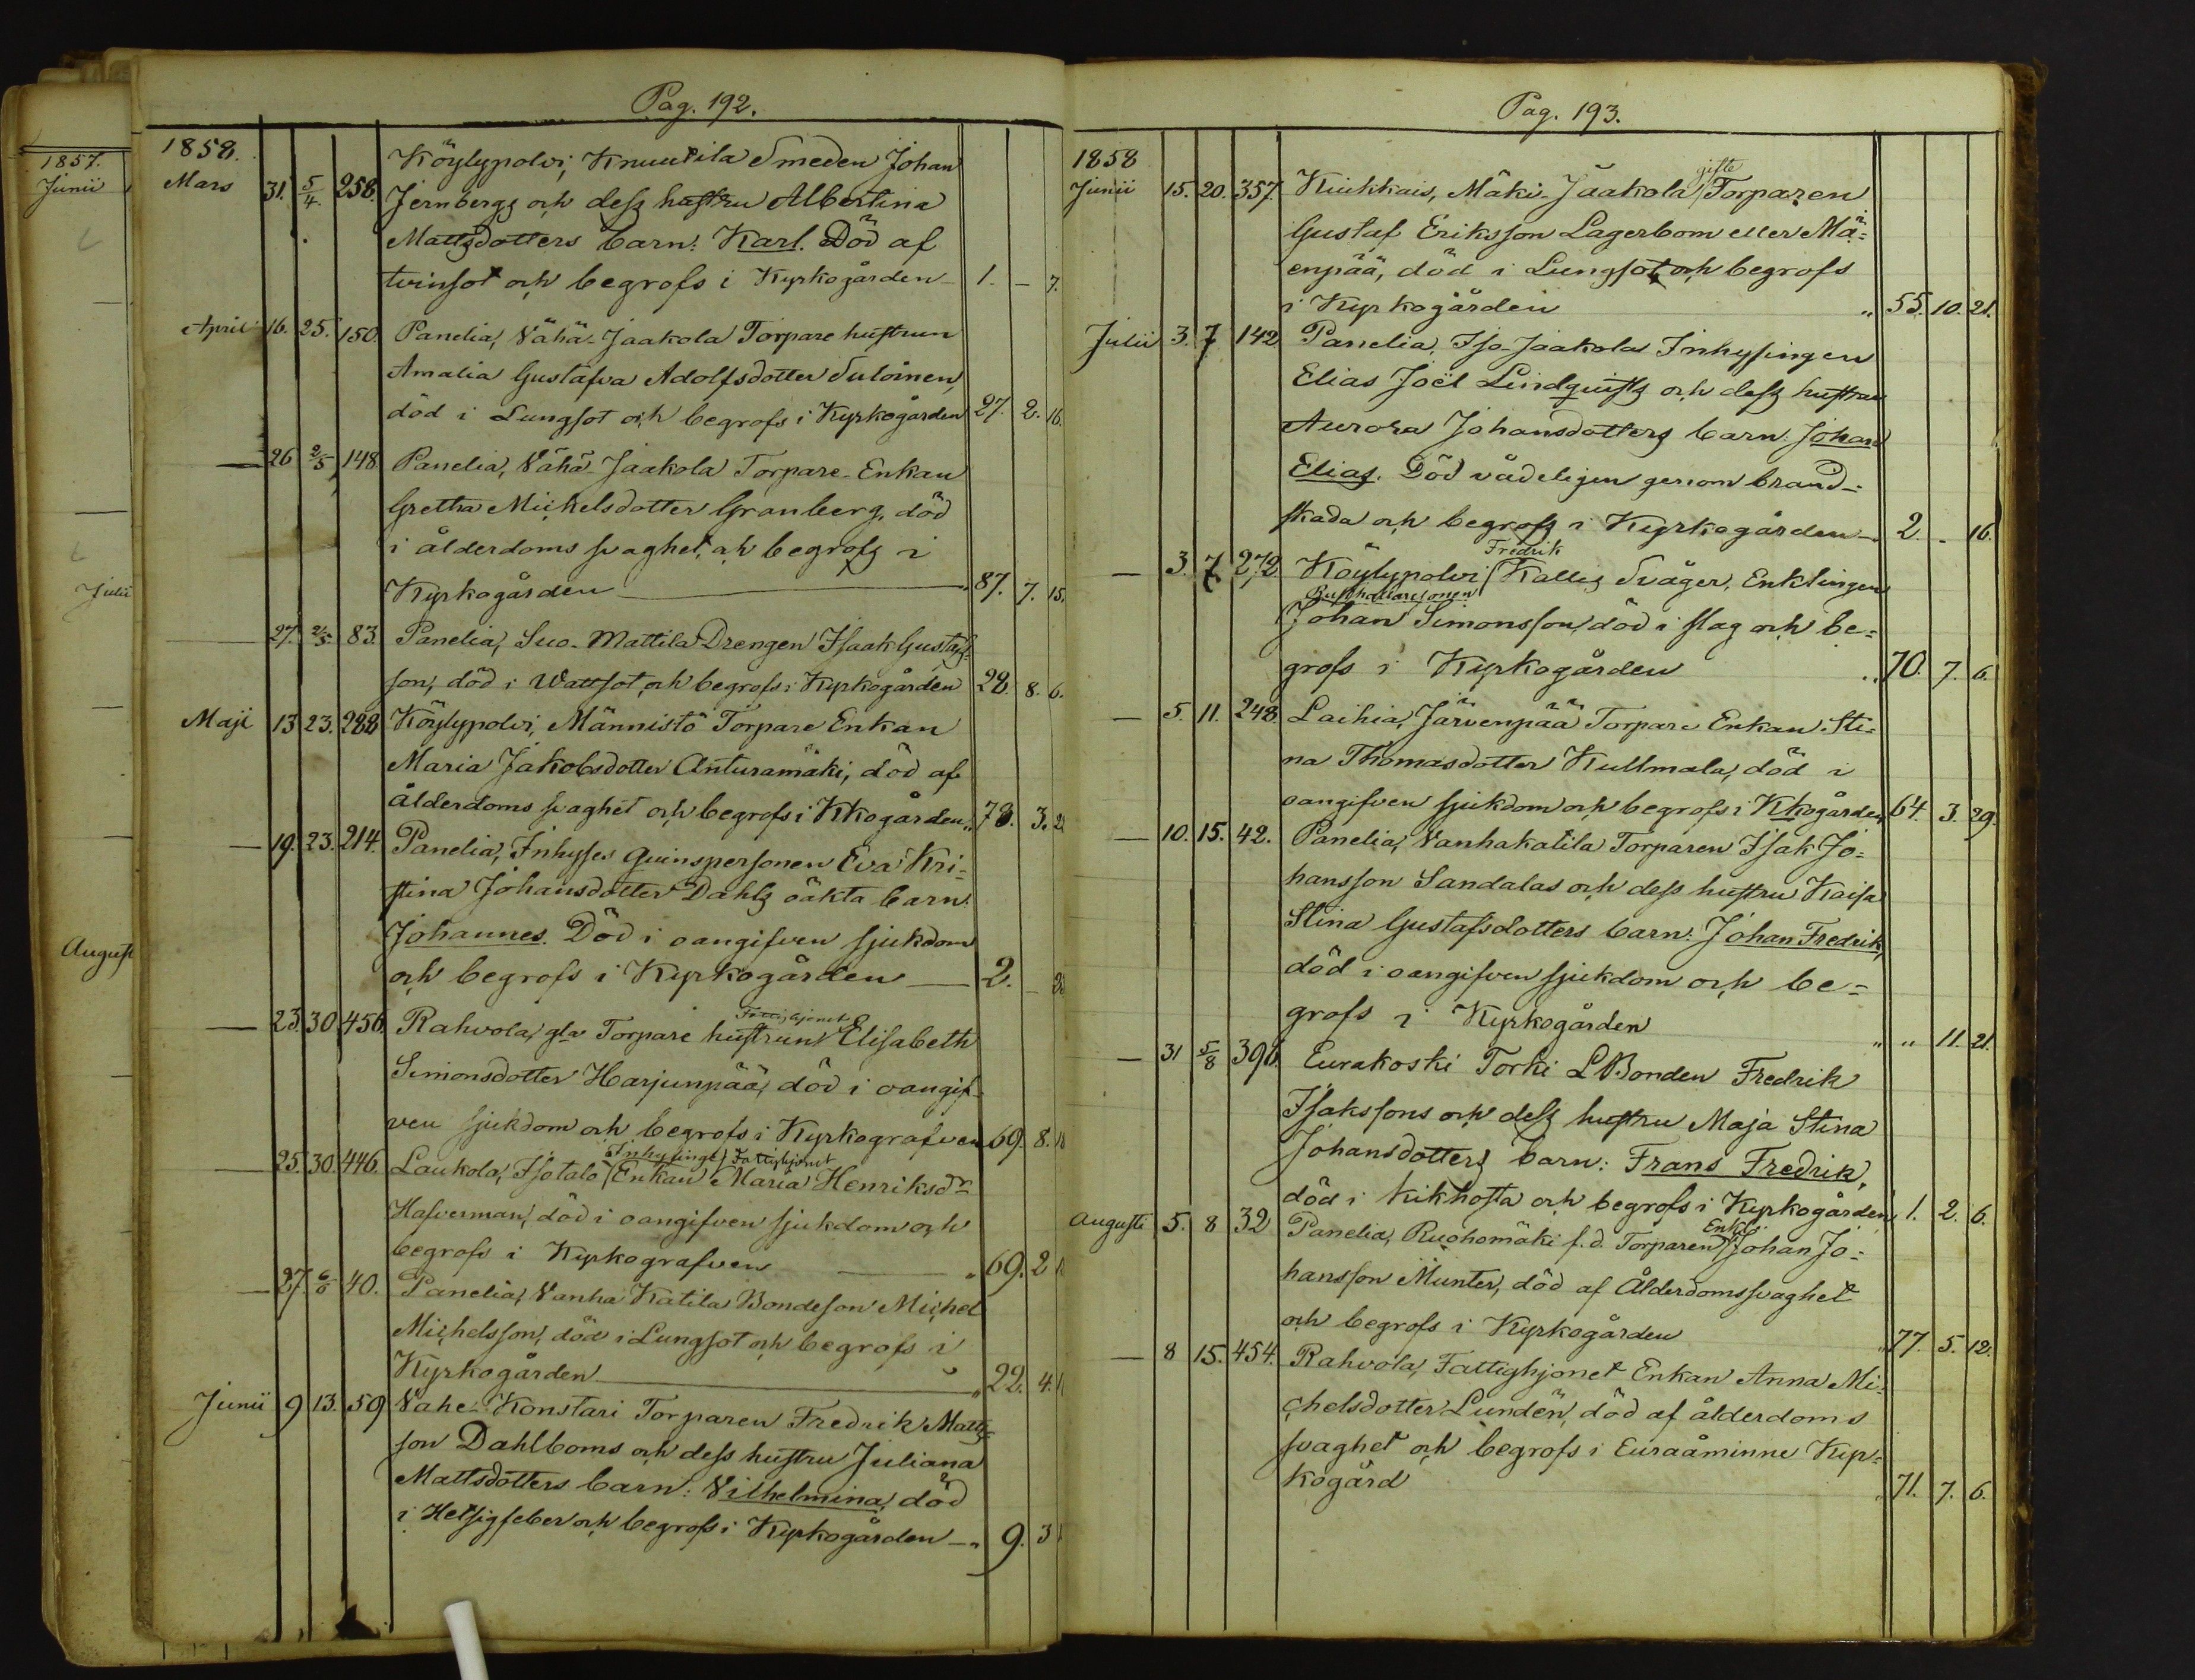 1857.
Junii
Julii
August
Pag. 192.
1858.
Mars 31. 5/4. 258. Köylypolvi, Knuutila Smeden Johan
Jernbergs och dess hustru Albertina
Mattsdotters barn: Karl. Död af
tvinsot och begrofs i Kyrkogården 1. – 7.
April 16. 25. 150. Panelia, Vähä-Jaakola Torpare hustrun
Amalia Gustafva Adolfsdotter Suloinen,
död i Lungsot och begrofs i Kyrkogården 27. 2. 16.
— 26 2/5 148. Panelia, Vähä-Jaakola Torpare-Enkan
Gretha Mickelsdotter Granberg, död
i ålderdoms svaghet, och begrofs i
Kyrkogården — 87. 7. 15.
— 27. 2/5. 83. Panelia, Suo-Mattila Drengen Isaak Gustafs-
son, död i Wattsot, och begrofs i Kyrkogården 28. 8. 6.
Maji 13 23. 288 Köylypolvi, Männistö Torpare Enkan
Maria Jakobsdotter Anturamäki, död af
ålderdoms svaghet och begrofs i Kkogården „ 78. 3.
— 19. 23. 214. Panelia, Inhyses Quinspersonen Eva Kri-
stina Johansdotter Dahls oäkta barn:
Johannes. Död i oangifven sjukdom
och begrofs i Kyrkogården — 2. –
— 23. 30. 456. Rahvola, gla Torpare hustrun Fattighjonet Elisabeth
Simonsdotter Harjunpää, död i oangif-
ven sjukdom och begrofs i Kyrkografven 69. 8.
— 25. 30. 446. Laukola, Isotalo Inhysings Enkan Fattighjonet Maria Henriksdr
Hafverman, död i oangifven sjukdom och
begrofs i Kyrkografven — „ 69. 2
— 27. 6/6 40. Panelia, Vanha Katila Bondeson Michel
Michelsson, död i Lungsot och begrofs i
Kyrkogården — „ 22. 4.
Junii 9 13. 59 Vahe-Konstari Torparen Fredrik Matts-
son Dahlboms och dess hustru Juliana
Mattsdotters barn: Vilhelmina, död
i Hetsigfeber och begrofs i Kyrkogården — „ 9. 3
Pag. 193.
1858
Junii 15. 20. 357. Kiukkais, Mäki-Jaakola gifte Torparen
Gustaf Eriksson Lagerbom eller Mä-
enpää, död i Lungsot och begrofs
i Kyrkogården „ 55. 10. 21.
Julii 3. 7 142 Panelia, Iso-Jaakola Inhysingen
Elias Joël Lindquists och dess hustrun
Aurora Johansdotters barn: Johan
Elias. Död vådeligen genom brand-
skada och begrofs i Kyrkogården — 2. – 16.
— 3. 7 272 Köylypolvi Fredrik Kallis Svåger, Enklingen
Gusthållaresonen
Johan Simonsson, död i slag och be-
grofs i Kyrkogården „ 70. 7. 6.
— 5. 11. 248. Laihia, Järvenpää Torpare Enkan Sti-
na Thomasdotter Kullmala, död i
oangifven sjukdom och begrofs i Kkogården 64. 3. 29.
— 10. 15. 42. Panelia, Vanhakatila Torparen Isak Jo-
hansson Sandalas och dess hustru Kaisa
Stina Gustafsdotters barn: Johan Fredrik,
död i oangifven sjukdom och be-
grofs i Kyrkogården „ „ 11. 21.
— 31 5/8 396. Eurakoski Torki LBonden Fredrik
Isakssons och dess hustru Maja Stina
Johansdotters barn: Frans Fredrik,
död i Kikhosta och begrofs i Kyrkogården 1. 2. 6.
Augusti 5. 8 32 Panelia, Ruohomäki f.d. Torparen Enkl. Johan Jo-
hansson Munter, död af Ålderdomssvaghet
och begrofs i Kyrkogården „ 77. 5. 12.
— 8 15. 454. Rahvola, Fattighjonet Enkan Anna Mi-
chelsdotter Lundén, död af ålderdoms
svaghet och begrofs i Euraåminne Kyr-
kogård „ 71. 7. 6.